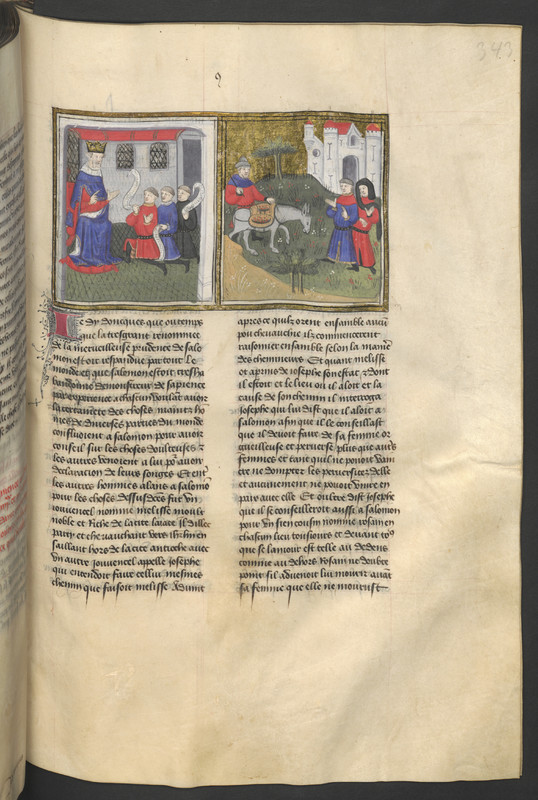 343
Je dy doncques que ou temps
que la tresgrant renommee
de la merueilleuse prudence de salo
mon estoit respandue par tout le
monde et que salomon estoit tresha
bandonne demonstreur de sapience
par experience a chascun voulat auoir
la certainete des choses maintz ho
mes de diuerses parties du monde
confluoient a salomon pour auoir
conseil sur les choses doubteuses et
les autres venoient a lui po auoir
declaration de leurs songes Et ent
les autres hommes alans a salomo
pour les choses dessusdites fut vn
iouuencel nomme melisse moult
noble et riche de la cite laiace Il dillec
party et cheuauchant vers iherlm en
saillant hors de la cite antioche auec
vn autre iouuencel appelle josephe
qui entendoit faire cellui mesmes
chemin que faisoit melisse Aduint
apres ce quilz orent ensamble aucu
pou cheuauche ilz commencerent
raisonner ensamble selon la maniere
des chemineurs Et quant melisse
ot aprins de josephe son estat et dont
il estoit et le lieu ou il aloit et la
cause de son chemin il interroga
Josephe qui lui dist que il aloit a
salomon afin que il le conseillast
que il deuoit faire de sa femme or
gueilleuse et peruerse plus que autres
femmes et tant quil ne pouoit vain
cre ne dompter les peruersitez delle
et aucunement ne pouoit viure en
paix auec elle Et oultre dist josephe
que il se conseilleroit aussi a salomon
pour vn sien cousin nomme rosam en
chascun lieu tousiours et deuant to9
que se lamour est telle au dedens
comme au dehors Rosam ne doubte
point sil aduenoit lui mourir auat
sa femme que elle ne mourust